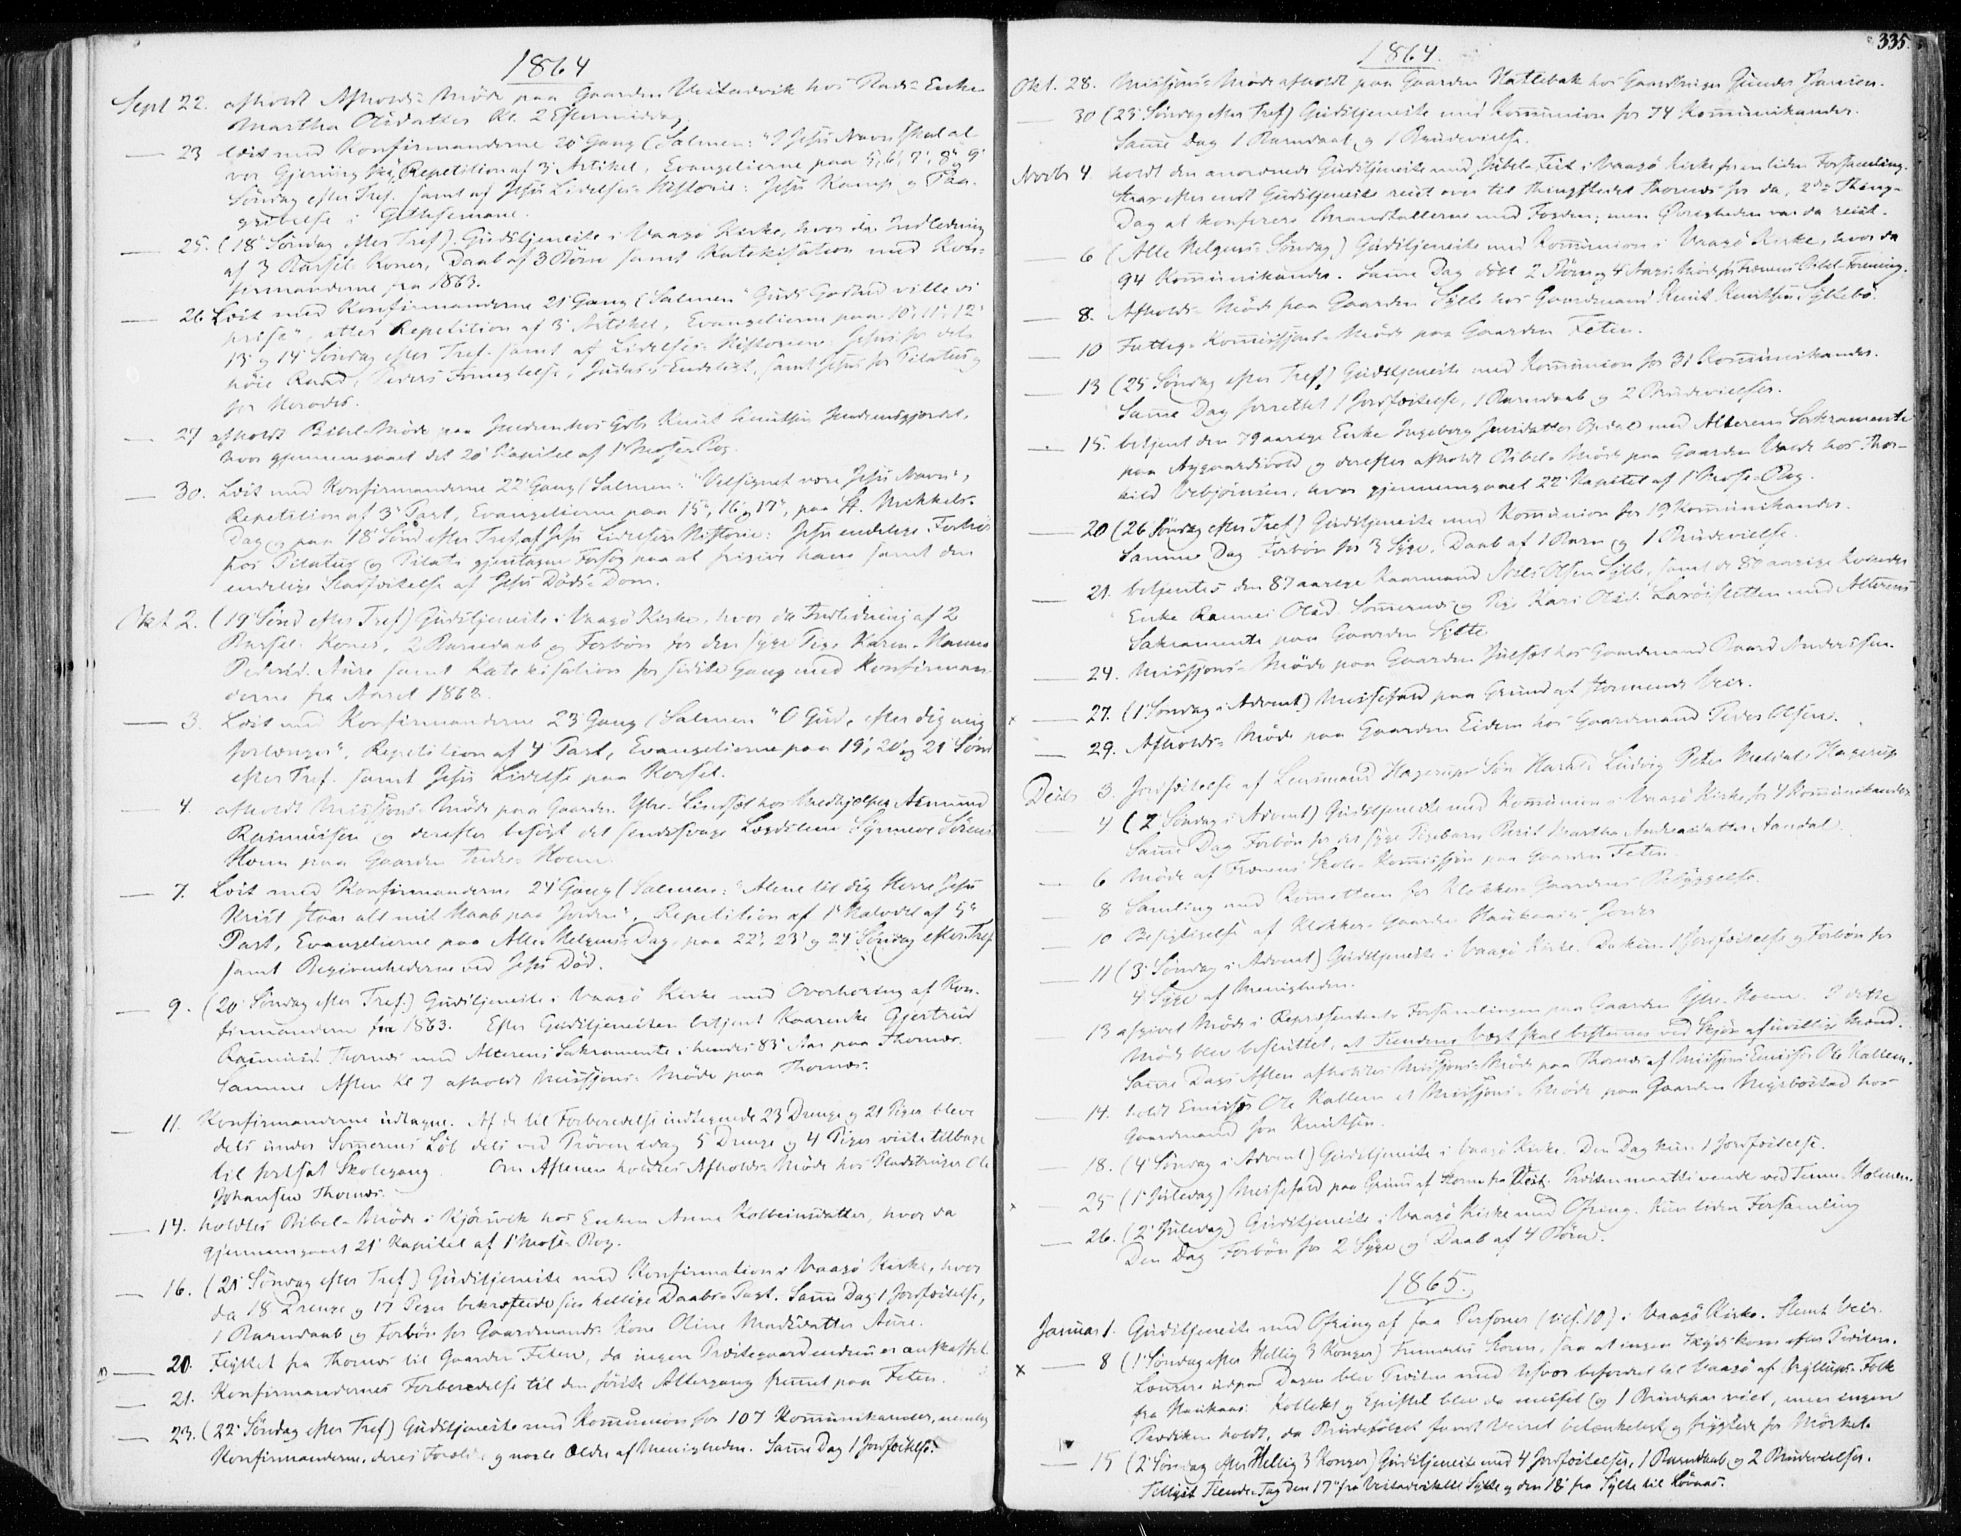 1864
Sept 22. afholdt Afholds-Möde paa Gaarden Vestadvik hos Enke
Martha Olsdatter Kl. 2 Eftermiddag.
— 23 læst med Konfirmanderne 20' Gang (Salmen: "I Jesu Navn skal al
vor Gjerning ske", Repetition af 3' Artikel, Evangelierne paa 5', 6', 7', 8' og 9'
Söndag efter Tref. samt af Jesu Lidelses-Historie: Jesu Kamp og Paa-
gribelse i Gethsemane.
— 25. (18' Söndag efter Tref) Gudstjeneste i Vaagö Kirke, hvor da Indledning
af 3 Barsel-Koner, Daab af 3 Börn samt Katekisation med Kon-
firmanderne fra 1863.
— 26 Læst med Konfirmanderne 21' Gang (Salmen "Guds Godhed ville vi
prise", atter Repetition af 3' Artikel, Evangelierne paa 10', 11', 12'
13' og 14' Söndag efter Tref. samt af Lidelses-Historien: Jesus for det
höie Raad, Peders Fornegtelse, Judas's Endeligt, samt Jesus for Pilatus og
for Herodes.
— 27 afholdt Bibel-Möde paa hos Knut Knutsen
hvor gjennemgaaet det 20' Kapitel af 1' Mose Bog.
— 30. Læst med Konfirmanderne 22' Gang (Salmen: "Velsignet være Jesu Navn",
Repetition af 3' Part, Evangelierne paa 15', 16' og 17', paa St. Mikkels-
Dag og paa 18' Sönd efter Tref, af Jesu Lidelses Historie: Jesu endelige Forhör
hos Pilatus og Pilati gjentagne Forsög paa at frigive ham samt den
endelige Stadfæstelse af Jesu Döds-Dom.
Okt 2. (19' Sönd efter Tref) Gudstjeneste i Vaagö Kirke, hvor da Indledning af 2
Barsel-Koner, 2 Barnedaab og Forbön for den syge Pige Karen-Hanna
Pedersd. Aure samt Katekisation for sidste Gang med Konfirman-
derne fra Aaret 1863.
— 3. Læst med Konfirmanderne 23' Gang (Salmen "O Gud, efter dig mig
forlænges", Repetition af 4' Part, Evangelierne paa 19', 20' og 21' Sönd
efter Tref. samt Jesu Lidelse paa Korset.
— 4. afholdt Missjons-Möde paa Gaarden Ytre-Lindset hos Medhjælper Asmund
Rasmussen og derefter besögt det sindssvage Lægdslem Synneve Sörens
Hoem paa Gaarden Indre-Hoem.
— 7. Læst med Konfirmanderne 24' Gang (Salmen: "Alene til dig Herre Jesu
Krist staar alt mit Haab paa Jorden", Repetition af 1' Halvdel af 5'
Part, Evangelierne paa Alle-Helgens-Dag, paa 22', 23' og 24' Söndag efter Tref
samt Begivenhederne ved Jesu Död.
— 9. (20' Söndag efter Tref.) Gudstjeneste i Vaagö Kirke med Overhöring af Kon-
firmanderne fra 1863. Efter Gudstjenesten betjent Kaarenke Gjertrud
Rasmusd. Thornæs med Alterens Sakramente i hendes 83' Aar paa Thornæs.
Samme Aften Kl 7 afholdt Missjons-Möde paa Thornæs.
— 11. Konfirmanderne udtagne. Af de til Forberedelse indtegnede 23 Drenge og 21 Piger bleve
dels under Sommerens Löb dels ved Pröven idag 5 Drenge og 4 Piger viste tilbage
til fortsat Skolegang. Om Aftenen holdtes Afholds-Möde hos Pladsbruger Ole
Johansen Thornæs.
— 14. holdtes Bibel-Möde i Kjörsvik hos Enken Anne Kolbeinsdatter, hvor da
gjennemgaaet 21' Kapitel af 1' Mose-Bog.
— 16. (21' Söndag efter Tref) Gudstjeneste med Konfirmation i Vaagö Kirke, hvor
da 18 Drenge og 17 Piger bekræftede sin hellige Daabs-Pagt. Samme Dag 1 Jordfæstelse,
1 Barnedaab og Forbön for Gaardmands-Kone Oline Madsdatter Aure.
— 20. Flyttet fra Thornæs til Gaarden Feten, da ingen Præstegaard endnu er anskaffet.
— 21. Konfirmandernes Forberedelse til den förste Altergang fremmet paa Feten.
— 23. (22' Söndag efter Tref) Gudstjeneste med Kommunion for 107 Kommunikanter, nemlig
Konfirmanderne, deres Foreldre og nogle Ældre af Menigheden. Samme Dag 1 Jordfæstelse.
335.
1864.
Okt. 28. Missjons-Möde afholdt paa Gaarden Hatlebak hos Gaardbruger Gunder Jansen.
— 30 (23' Söndag efter Tref) Gudstjeneste med Kommunion for 74 Kommunikanter.
Samme Dag 1 Barnedaab og 1 Brudevielse.
Novbr 4. holdt den anordnede Gudstjeneste med Jubel-Fest i Vaagö Kirke for en liden Forsamling.
Strax efter endt Gudstjeneste reist over til Thingstedet Thornæs for da, 2den Thing-
Dag at konferere Mandtallerne med Fogden; men Övrigheden var da reist.
— 6 (Alle Helgens-Söndag) Gudstjeneste med Kommunion i Vaagö Kirke, hvor da
94 Kommunikanter. Samme Dag döbt 2 Börn og 4' Aars Möde for Frænens Bibel-Forening.
— 8. Afholds-Möde paa Gaarden Sylte hos Gaardmand Knut Knutsen Syltebö.
— 10 Fattig-Kommissjons-Möde paa Gaarden Feten.
— 13 (25' Söndag efter Tref) Gudstjeneste med Kommunion for 31 Kommunikanter.
Samme Dag forrettet 1 Jordfæstelse, 1 Barnedaab og 2 Brudevielser.
— 15. betjent den 79 aarige Enke Ingeborg Jensdatter med Alterens Sakramente
paa Nygaardsvold og derefter afholdt Bibel-Möde paa Gaarden hos Thor-
kild Vebjörnsen, hvor gjennemgaaet 22' Kapitel af 1' Mose-Bog.
— 20 (26' Söndag efter Tref) Gudstjeneste med Kommunion for 19 Kommunikanter.
Samme Dag Forbön for 3 Syge, Daab af 1 Barn og 1 Brudevielse.
— 21. betjentes den 87 aarige Kaarmand Nils Olsen Sylte, samt de 80 aarige
Enke Rannei Olsd. Sommernæs og Pige Kari Olsd. med Alterens
Sakramente paa Gaarden Sylte
— 24. Missjons-Möde paa Gaarden Julset hos Gaardmand Baard Anderssen.
x — 27. (1' Söndag i Advent) Messefald paa Grund af stormende Veir.
— 29. Afholds-Möde paa Gaarden Eidem hos Gaardmand Peder Olsen.
Decbr 3. Jordfæstelse af Lensmand Hagerups Sön Harald Ludvig Peter Hagerup
4 (2 Söndag i Advent) Gudstjeneste med Kommunion i Vaagö Kirke for 4 Kommunikanter
Samme Dag Forbön for det syge Pigebarn Berit Martha Andreasdatter Aandal.
— 6 Möde af Frænens Skole-Kommissjon paa Gaarden Feten.
— 8 Samling med Komitteen for Klokker-Gaardens Bebyggelse.
— 10 Besigtigelse af Klokker-Gaarden Jorder
— 11 (3' Söndag i Advent) Gudstjeneste i Vaagö Kirke. Da kun 1 Jordfæstelse og Forbön for
4 Syge af Menigheden.
— 13 afgivet Möde i Repræsentant-Forsamlingen paa Gaarden Ytre-Hoem. I dette
Möde blev besluttet, at Tiendens Vægt skal bestemmes ved Skjön af uvillige Mænd.
Samme Dags Aften afholdtes Missjons-Möde paa Thornæs af Missjons Emissær Ole Kallem.
— 14. holdt Emissær Ole Kallem et Missjons-Möde paa Gaarden Myrbostad hos
Gaardmand Jon Knutsen.
18. (4' Söndag i Advent) Gudstjeneste i Vaagö Kirke. Den Dag kun 1 Jordfæstelse.
x — 25 (1' Juledag) Messefald paa Grund af Storm fra Vest. Præsten maatte vende ved Holmen.
— 26. (2' Juledag) Gudstjeneste i Vaagö Kirke med Ofring. Kun liden Forsamling
Den Dag Forbön for 2 Syge og Daab af 4 Börn.
1865.
Januar 1. Gudstjeneste med Ofring af faa Personer (vel 10) i Vaagö Kirke. Slemt Veir.
x — 8 (1' Söndag efter Hellig 3 Konger) Storm, saa at ingen Skyds kom efter Præsten.
Længere udpaa Dagen blev Præsten med befordret til Vaagö af Bryllups-Folk
fra Haukaas. Kollekt og Epistel blev da messet og 1 Brudepar viet, men ingen
Prædiken holdt, da Brudefölget fandt Veiret betænkeligt og frygtede for Mörket.
— 15 (2' Söndag efter Hellig 3 Konger) Gudstjeneste med 4 Jordfæstelser, 1 Barnedaab og 2 Brudevielser.
Tillyst Tiende-Tag den 17' fra til Sylte og den 18' fra Sylte til